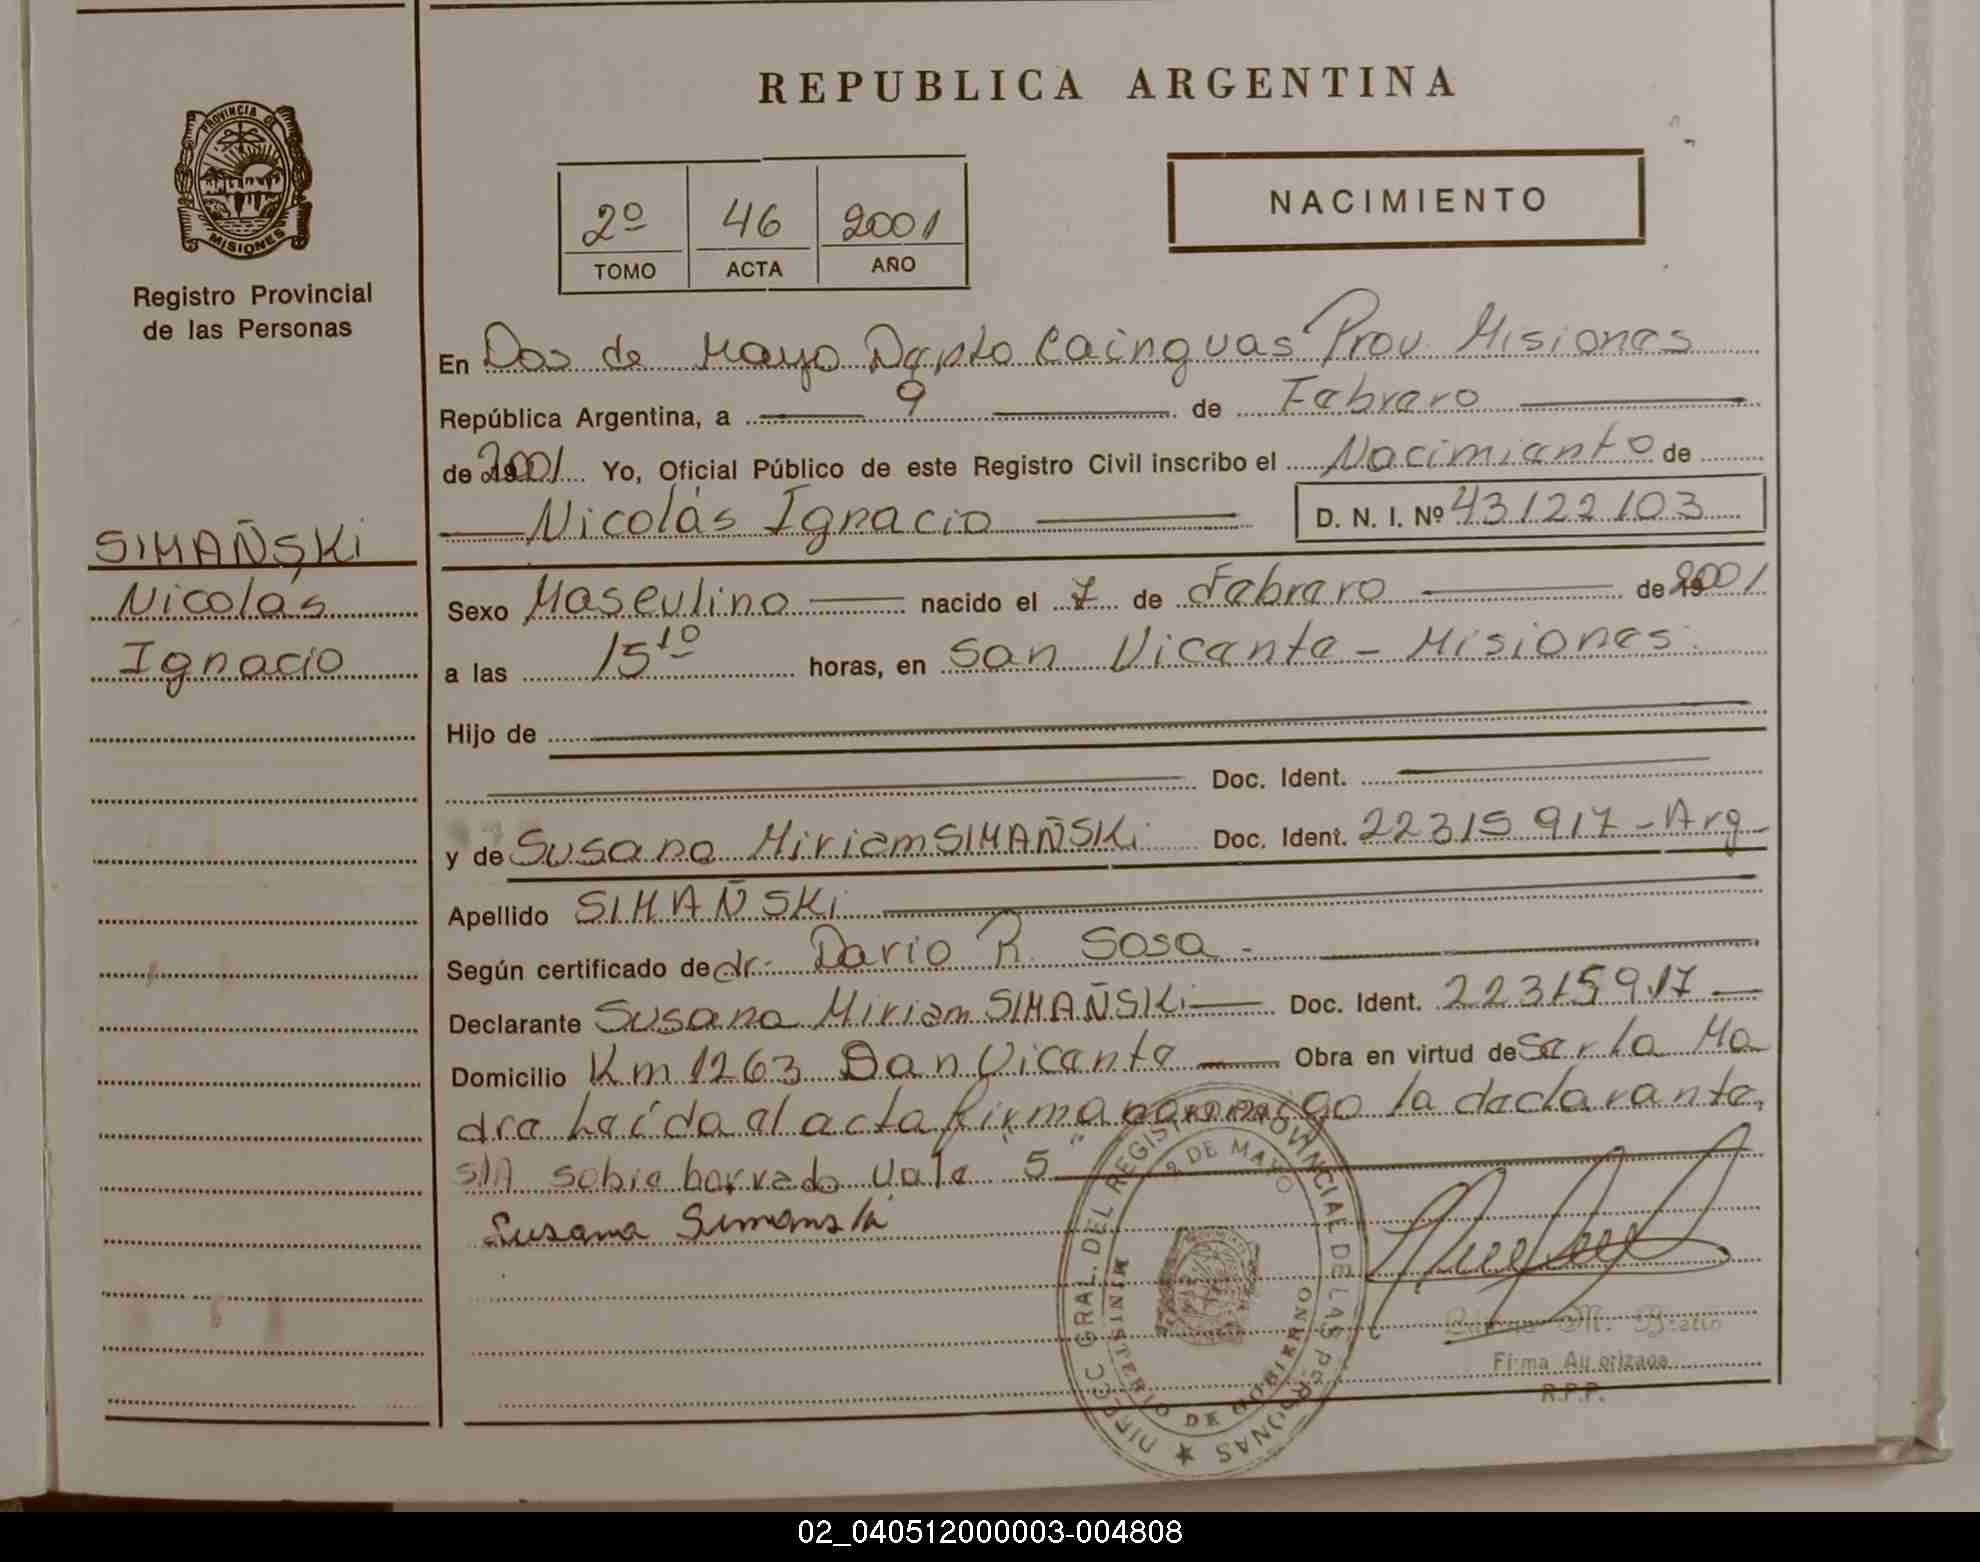 REPUBLICA ARGENTINA
PROVINCIA DE
MISIONES
Registro Provincial
de las Personas
2º 46 2001
TOMO ACTA AÑO
NACIMIENTO
En Dos de Mayo Dpto Cainguas Prov. Misiones
República Argentina, a 9 de Febrero
de 2001 Yo, Oficial Público de este Registro Civil inscribo el Nacimiento de
Nicolás Ignacio D. N. I. Nº 43122103
SIMAÑSKi
Nicolás
Ignacio
Sexo Masculino nacido el 7 de Febrero de 2001
a las 15 10 horas, en San Vicente - Misiones.
Hijo de
Doc. Ident.
y de Susana Miriam SIMAÑSKi Doc. Ident. 22315917 - Arg
Apellido SIMAÑSKi
Según certificado de dr. Dario R. Sosa -
Declarante Susana Miriam SIMAÑSKi Doc. Ident. 22315917
Domicilio Km 1263 San Vicente Obra en virtud de Ser la Ma
dre Leída el acta firma conmigo la declarante,
S/A sobre borrado vale "5"
Susana Simanski
DIRECC GRAL. DEL REGISTRO PROVINCIAL DE LAS PERSONAS
2 DE MAYO
MINISTERIO DE GOBIERNO
Firma Autorizada
R.P.P.
02_040512000003-004808